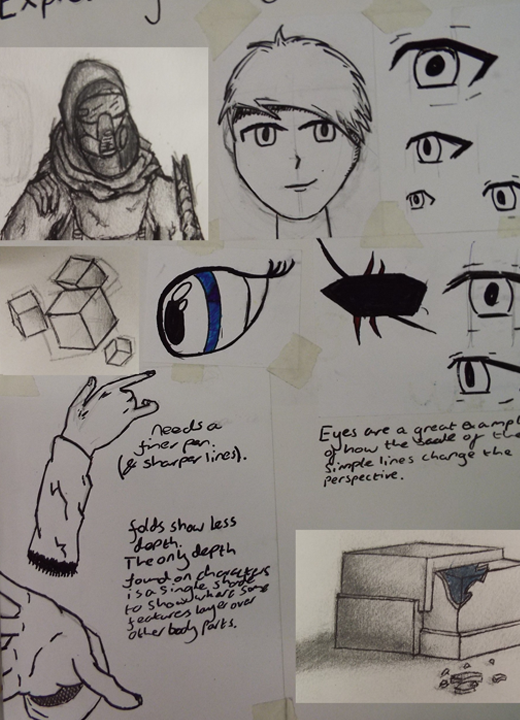 needs a
finer pen.
(& sharper lines).
Eyes are a great exampl
of how the scale of the
simple lines change the
perspective.
folds show less
depth.
The only depth
found on characters
is a single shade
to show where some
features layer over
other body parts.